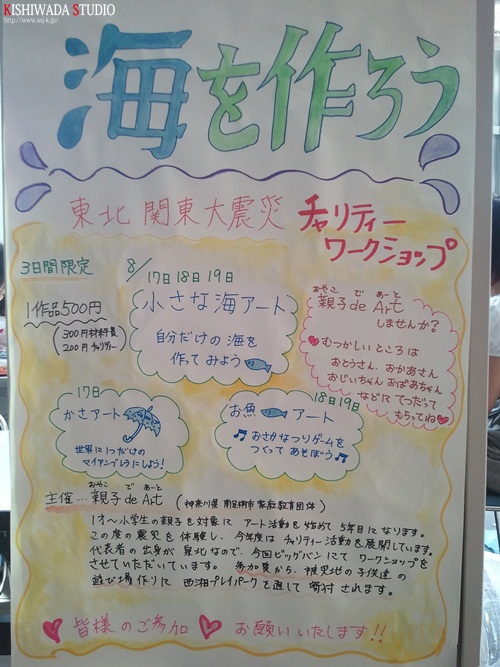 KISHIWADA STUDIO
http://www.asj-k.jp/
海を作ろう
東北関東大震災 チャリティー
ワークショップ
3日間限定
1作品500円
(300円材料費
200円チャリティー)
8/17日18日19日
小さな海アート
自分だけの海を
作ってみよう
おやこ で あーと
親子 de Art
しませんか?
むつかしい ところ は
おとうさん、おかあさん
おじいちゃん おばあちゃん
などに てつだって
もらってね
17日
かさアート
世界に1つだけの
マイアンブレラにしよう!
18日19日
お魚 アート
おさかなつりゲームを
つくって あそぼーう
おやこ で あーと
主催…親子 de Art (神奈川県 南足柄市 家庭教育団体)
1才〜小学生の親子を対象に アート活動を始めて 5年目になります。
この度の震災を体験し、今年度は チャリティー活動を展開しています。
代表者の出身が 泉北なので、今回ビッグバンにて ワークショップを
させていただいています。 参加費から、被災地の子供達の
遊び場作りに 西湘プレイパークを通して 寄付されます。
皆様のご参加 お願いいたします!!